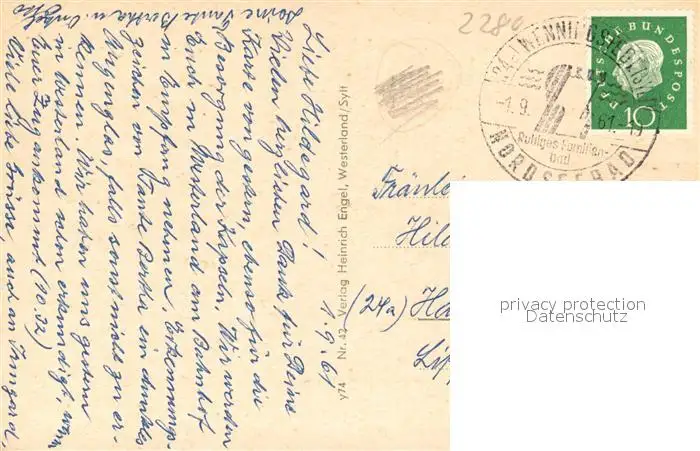 1.9.61
Liebe Hildegard!
Vielen herzlichen Dank für Deine
Karte von gestern, ebenso für die
Besorgung der Kapseln. Wir werden
Euch in Westerland am Bahnhof
in Empfang nehmen. Erkennungs-
zeichen von Tante Bertha ein dunkles
falls sonst nicht zu er-
kennen. Wir haben uns gestern
in Westerland schon erkundigt, wann
Euer Zug ankommt (10.32)
Viele liebe Grüsse, auch an Irmgard,
Deine Tante Bertha u. Onkel Otto
y74 Nr. 42 Verlag Heinrich Engel, Westerland/Sylt
2280
(24) WENNINGSTEDT
-1.9.61.-19
Ruhiges Familien-
bad
NORDSEEBAD
DEUTSCHE BUNDESPOST
10
Fräulei
Hil
(24a) Ha
privacy protection
Datenschutz